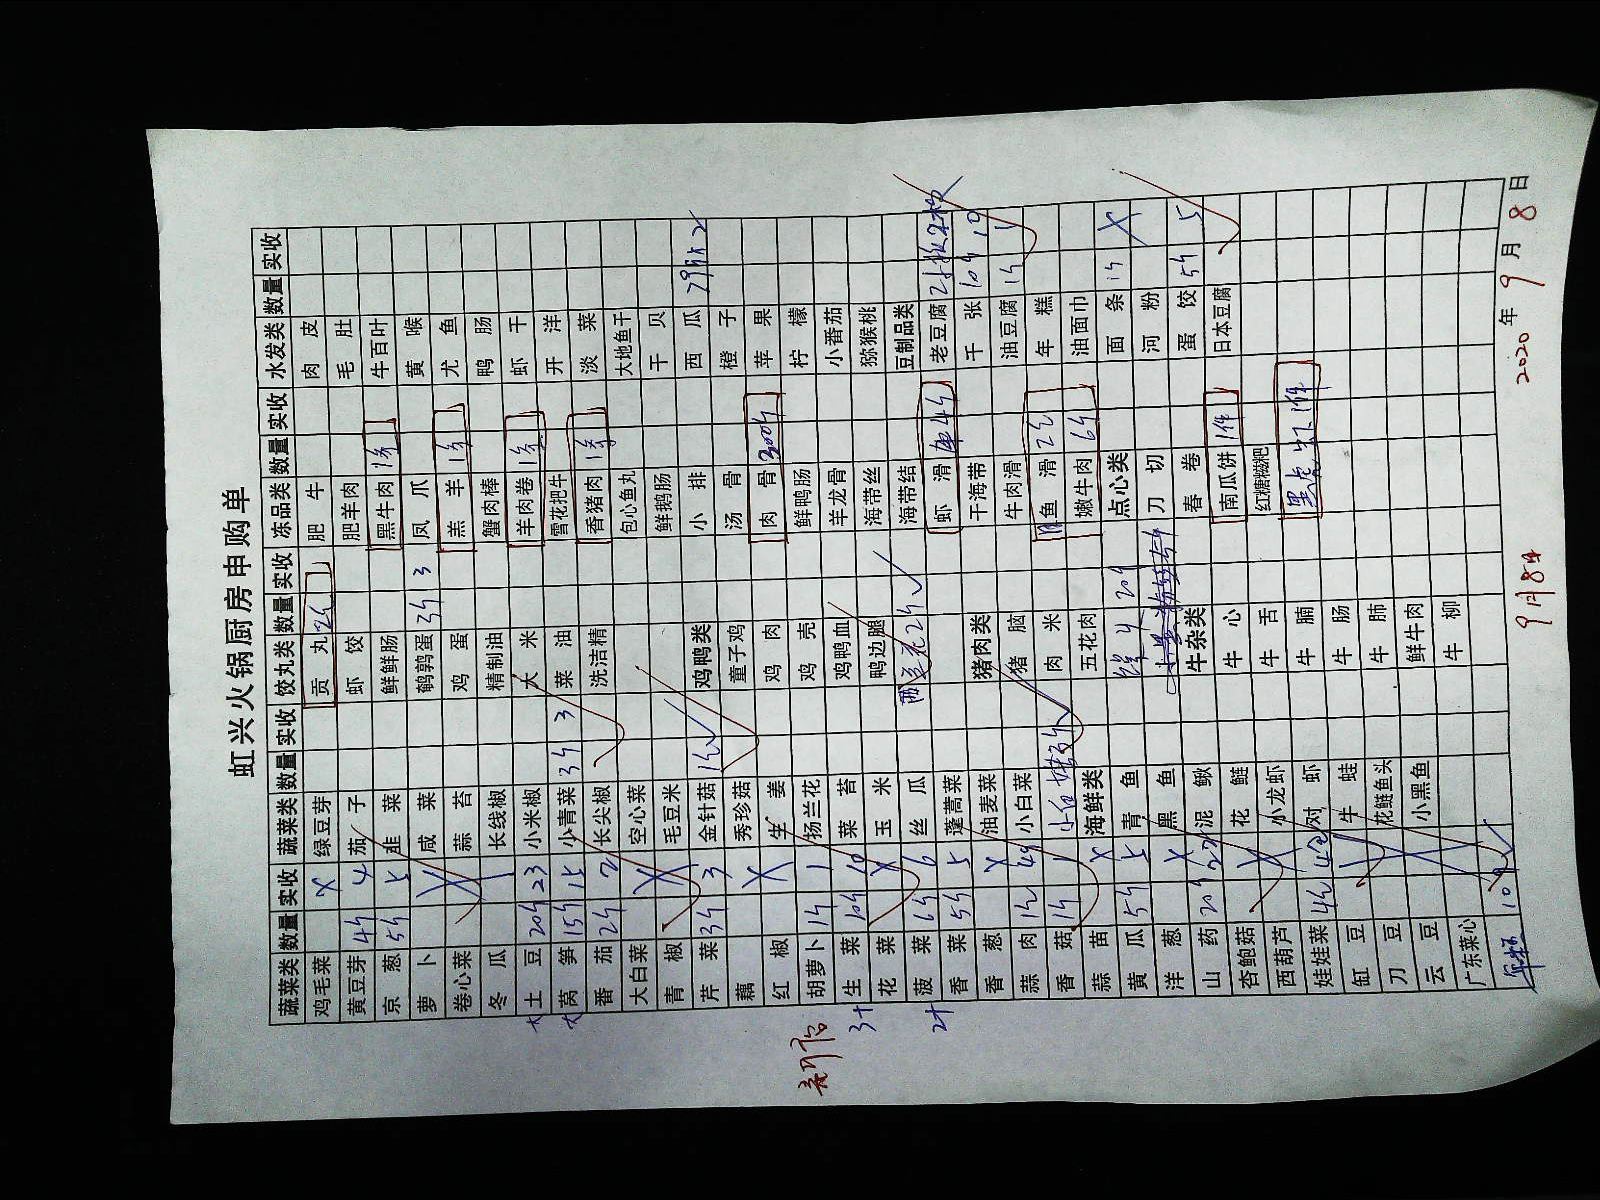 虹兴火锅厨房申购单
蔬菜类 数量 实收 蔬菜类 数量 实收 饺丸类 数量 实收 冻品类 数量 实收 水发类 数量 实收
鸡毛菜 X 绿豆芽 贡丸 2斤 肥牛 肉皮
黄豆芽 4斤 4 茄子 虾饺 肥羊肉 毛肚
京葱 5斤 5 韭菜 鲜鲜肠 黑牛肉 1条 牛百叶
萝卜 咸菜 鹌鹑蛋 3斤 3 凤爪 黄喉
卷心菜 蒜苔 鸡蛋 羔羊 1条 尤鱼
冬瓜 长线椒 精制油 蟹肉棒 鸭肠
大 土豆 20斤 23 小米椒 大米 羊肉卷 1条 虾干
大 莴笋 15斤 15 小青菜 3斤 3 菜油 雪花把牛 开洋
番茄 2斤 2 长尖椒 洗洁精 香猪肉 1条 淡菜
大白菜 空心菜 包心鱼丸 大地鱼干
青椒 毛豆米 鲜鹅肠 干贝
芹菜 3斤 3 金针菇 鸡鸭类 小排 西瓜
藕 秀珍菇 童子鸡 汤骨 橙子
红椒 X 生姜 鸡肉 肉骨 300斤 苹果
胡萝卜 1斤 1 扬兰花 鸡壳 鲜鸭肠 柠檬
生菜 10斤 10 菜苔 鸡鸭血 羊龙骨 小番茄
花菜 X 玉米 鸭边腿 海带丝 猕猴桃
菠菜 6斤 6 丝瓜 西兰花 2斤 海带结 豆制品类
香菜 5斤 5 蓬蒿菜 虾滑 4斤 老豆腐
香葱 X 油麦菜 猪肉类 干海带 千张 10斤 10
蒜肉 1斤 小白菜 猪脑 牛肉滑 油豆腐 1斤 1
香菇 1斤 1 肉米 鱼滑 年糕
蒜苗 X 海鲜类 五花肉 嫩牛肉 6斤 油面巾
黄瓜 5斤 5 青鱼 20斤 点心类 面条 1斤 X
洋葱 X 黑鱼 刀切 河粉
山药 20斤 22 泥鳅 牛杂类 春卷 蛋饺 5斤 5
杏鲍菇 花鲢 牛心 南瓜饼 1件 日本豆腐
西葫芦 X 小龙虾 牛舌 红糖糍粑
娃娃菜 对虾 牛腩 黑虎虾 1件
缸豆 牛蛙 牛肠
刀豆 花鲢鱼头 牛肺
云豆 小黑鱼 鲜牛肉
广东菜心 牛柳
2020年9月8日
9月8日